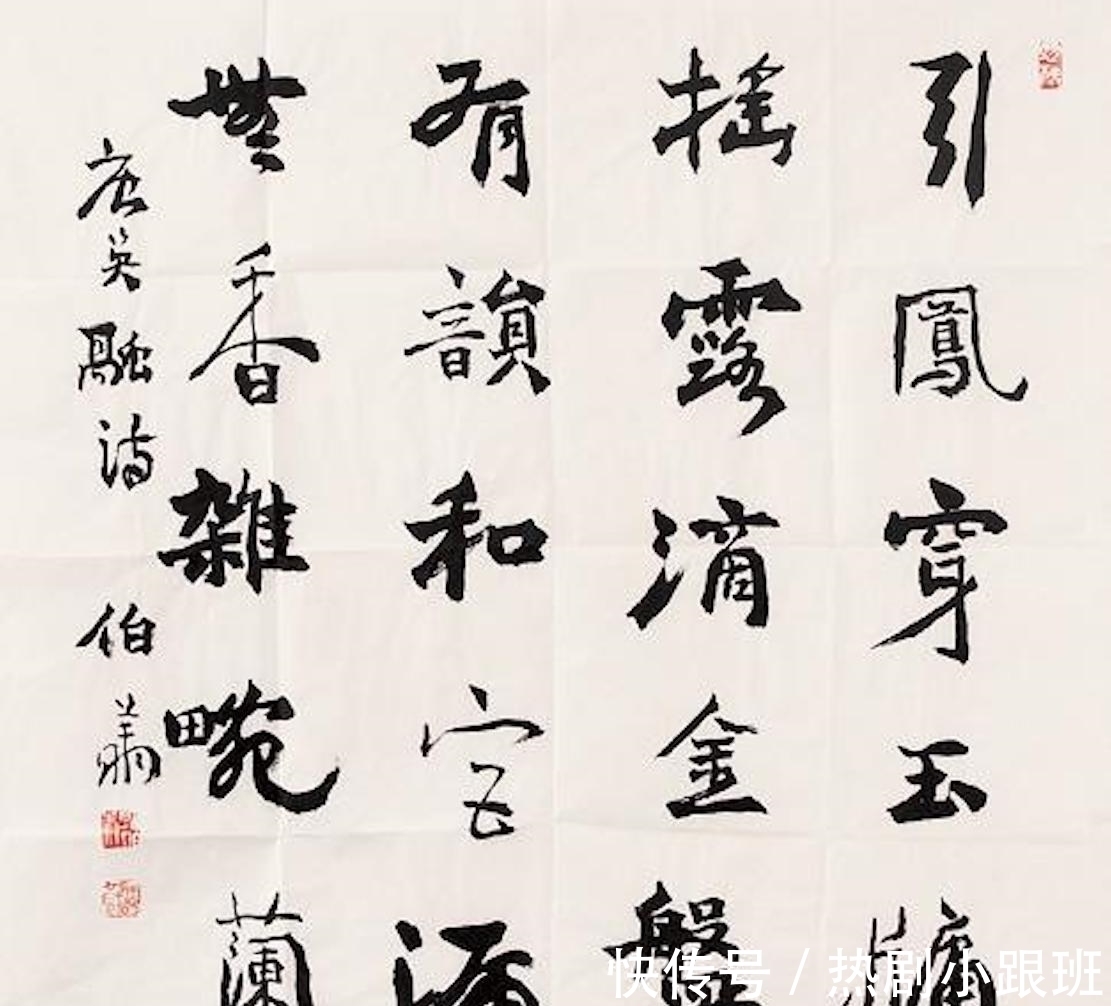 引鳳穿玉牖
搖露滴金盤
有韻和宮漏
無香雜畹蘭
唐吳融詩
伯翔
快传号 / 热剧小跟班